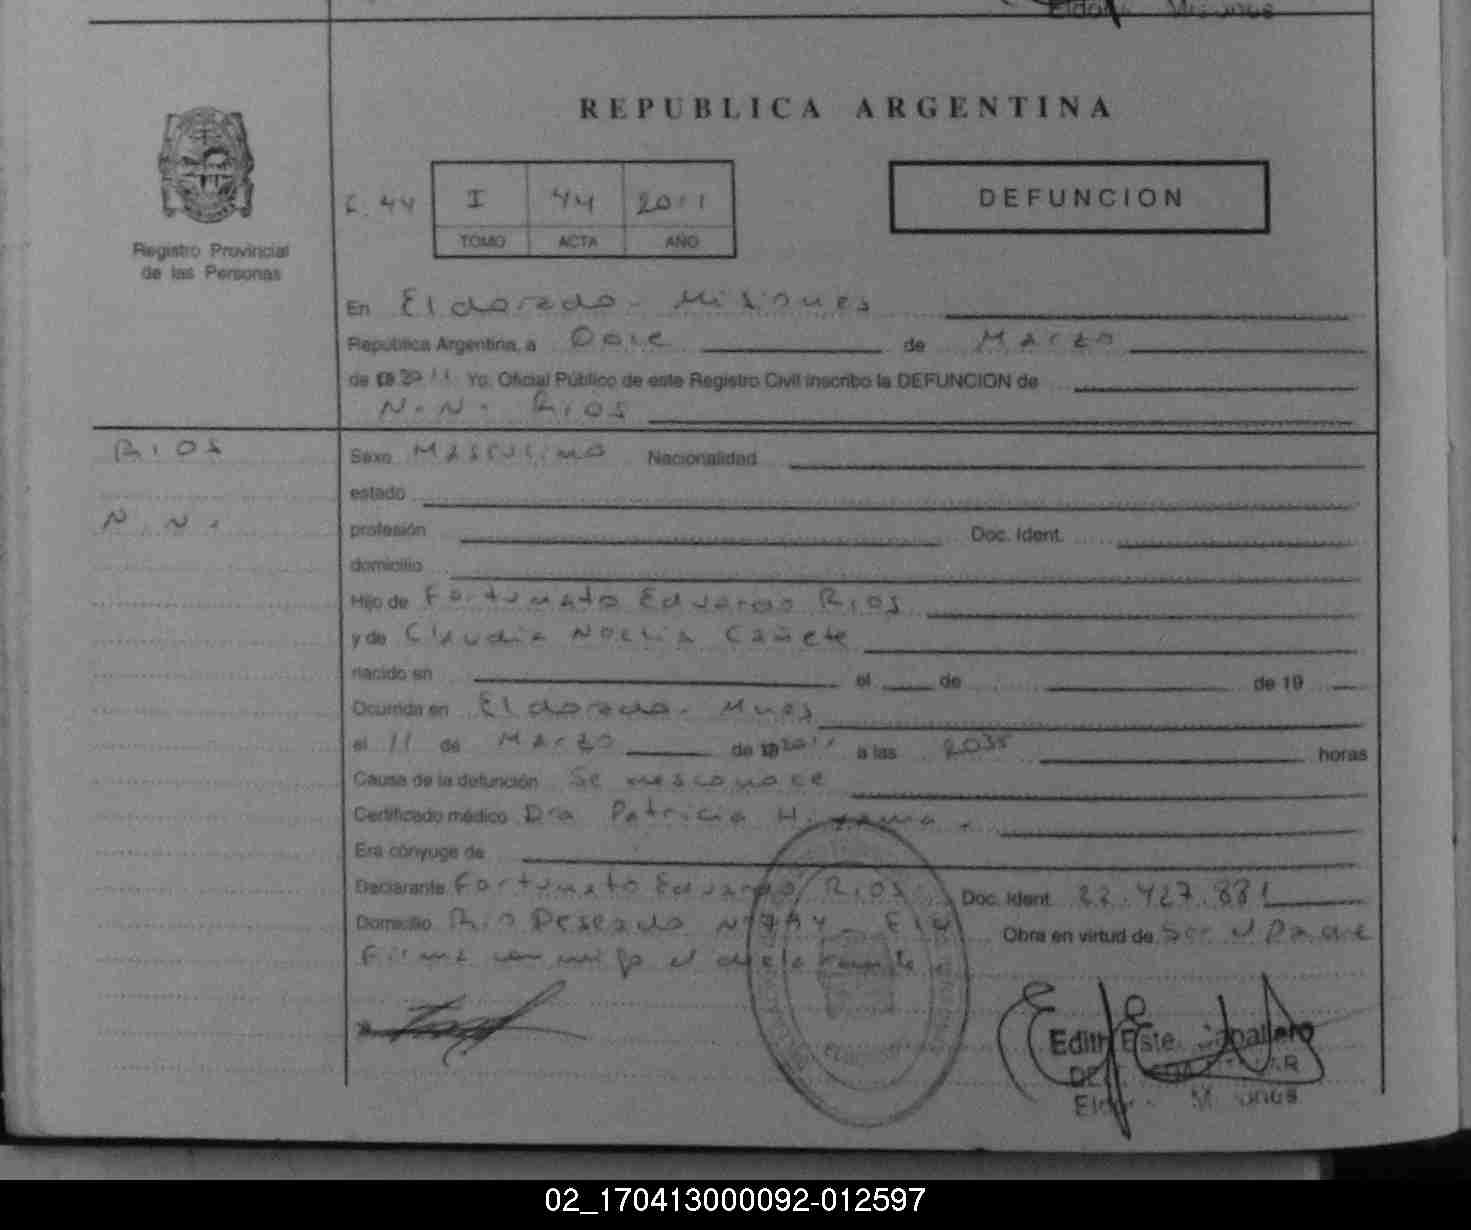 REPUBLICA ARGENTINA
F. 44 I 44 2011
TOMO ACTA AÑO
DEFUNCION
Registro Provincial
de las Personas
En Eldorado - Misiones
República Argentina, a Doce de Marzo
de 2011 Yo, Oficial Público de este Registro Civil inscribo la DEFUNCION de
N.N. Rios
Rios
N.N.
Sexo Masculino Nacionalidad
estado
profesión Doc. Ident.
domicilio
Hijo de Fortunato Eduardo Rios
y de Claudia Noelia Cañete
nacido en el de de 19
Ocurrida en Eldorado - Mnes
el 11 de Marzo de 2011 a las 2035 horas
Causa de la defunción Se desconoce
Certificado médico Dra Patricia H.
Era cónyuge de
Declarante Fortunato Eduardo Rios Doc. Ident. 22.427.881
Domicilio Rio Deseado Obra en virtud de Ser el Padre
Firma conmigo el declarante
Edith Este Caballero
02_170413000092-012597